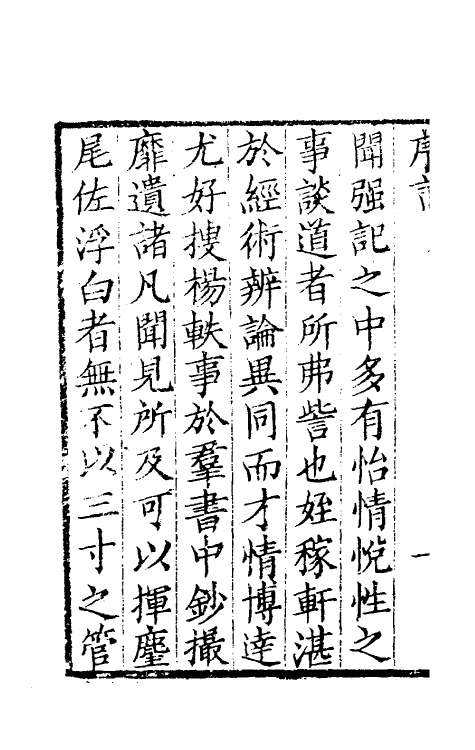 聞强記之中多有怡情悅性之
事談道者所弗訾也姪稼軒湛
於經術辨論異同而才情博達
尤好搜楊軼事於羣書中鈔撮
靡遺諸凡聞見所及可以揮麈
尾佐浮白者無不以三寸之管
一